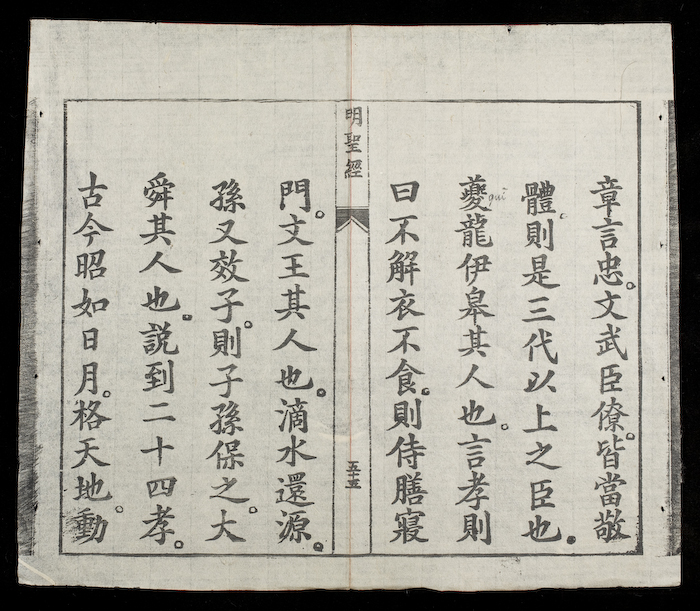 章言忠。文武臣僚。皆當敬
體。則是三代以上之臣也。
夔龍伊皋其人也。言孝則
quì
曰不解衣不食。則侍膳寢
明聖經
五十五
門。文王其人也。滴水還源。
孫又效子。則子孫保之。大
舜其人也。説到二十四孝。
古今昭如日月。格天地。動